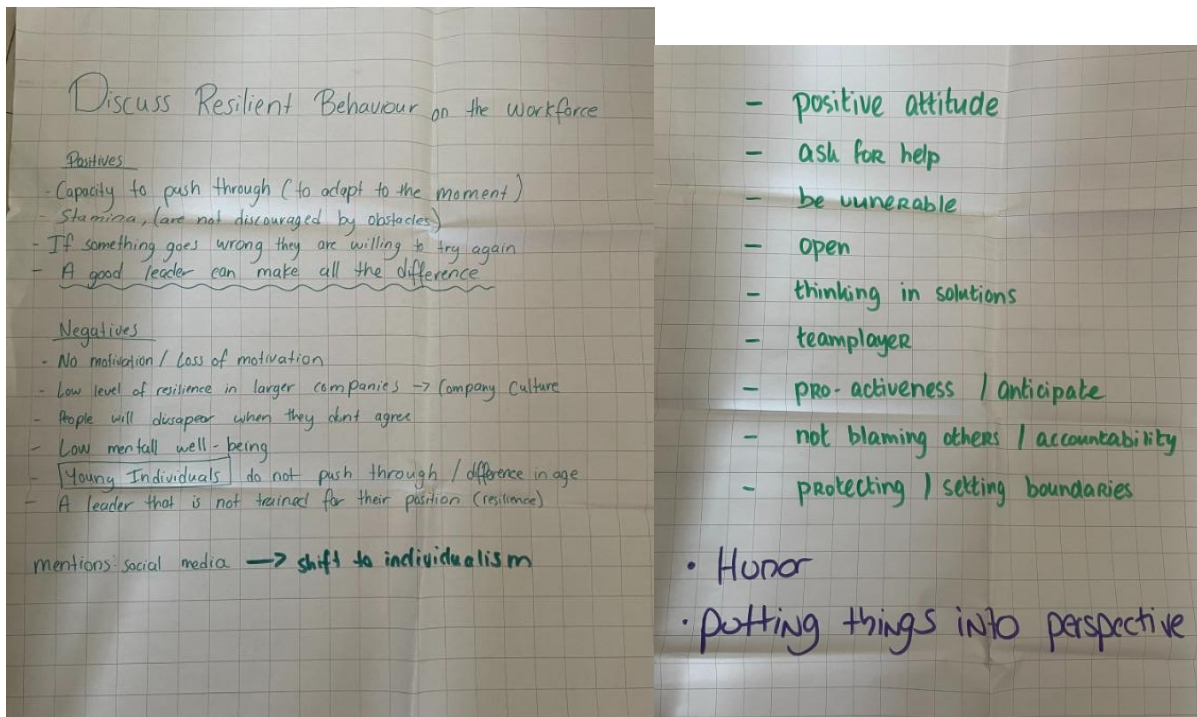 Discuss Resilient Behaviour on the workforce
Positives
- Capacity to push through (to adapt to the moment)
- Stamina, (are not discouraged by obstacles)
- If something goes wrong they are willing to try again
- A good leader can make all the difference
Negatives
- No motivation / Loss of motivation
- Low level of resilience in larger companies → Company Culture
- People will dissapear when they dont agree
- Low mentall well-being
- Young Individuals do not push through / difference in age
- A leader that is not trained for their position (resilience)
mentions: social media → shift to individualism
- positive attitude
- ask for help
- be vunerable
- open
- thinking in solutions
- teamplayer
- pro-activeness / anticipate
- not blaming others / accountability
- protecting / setting boundaries
• Humor
• putting things into perspective